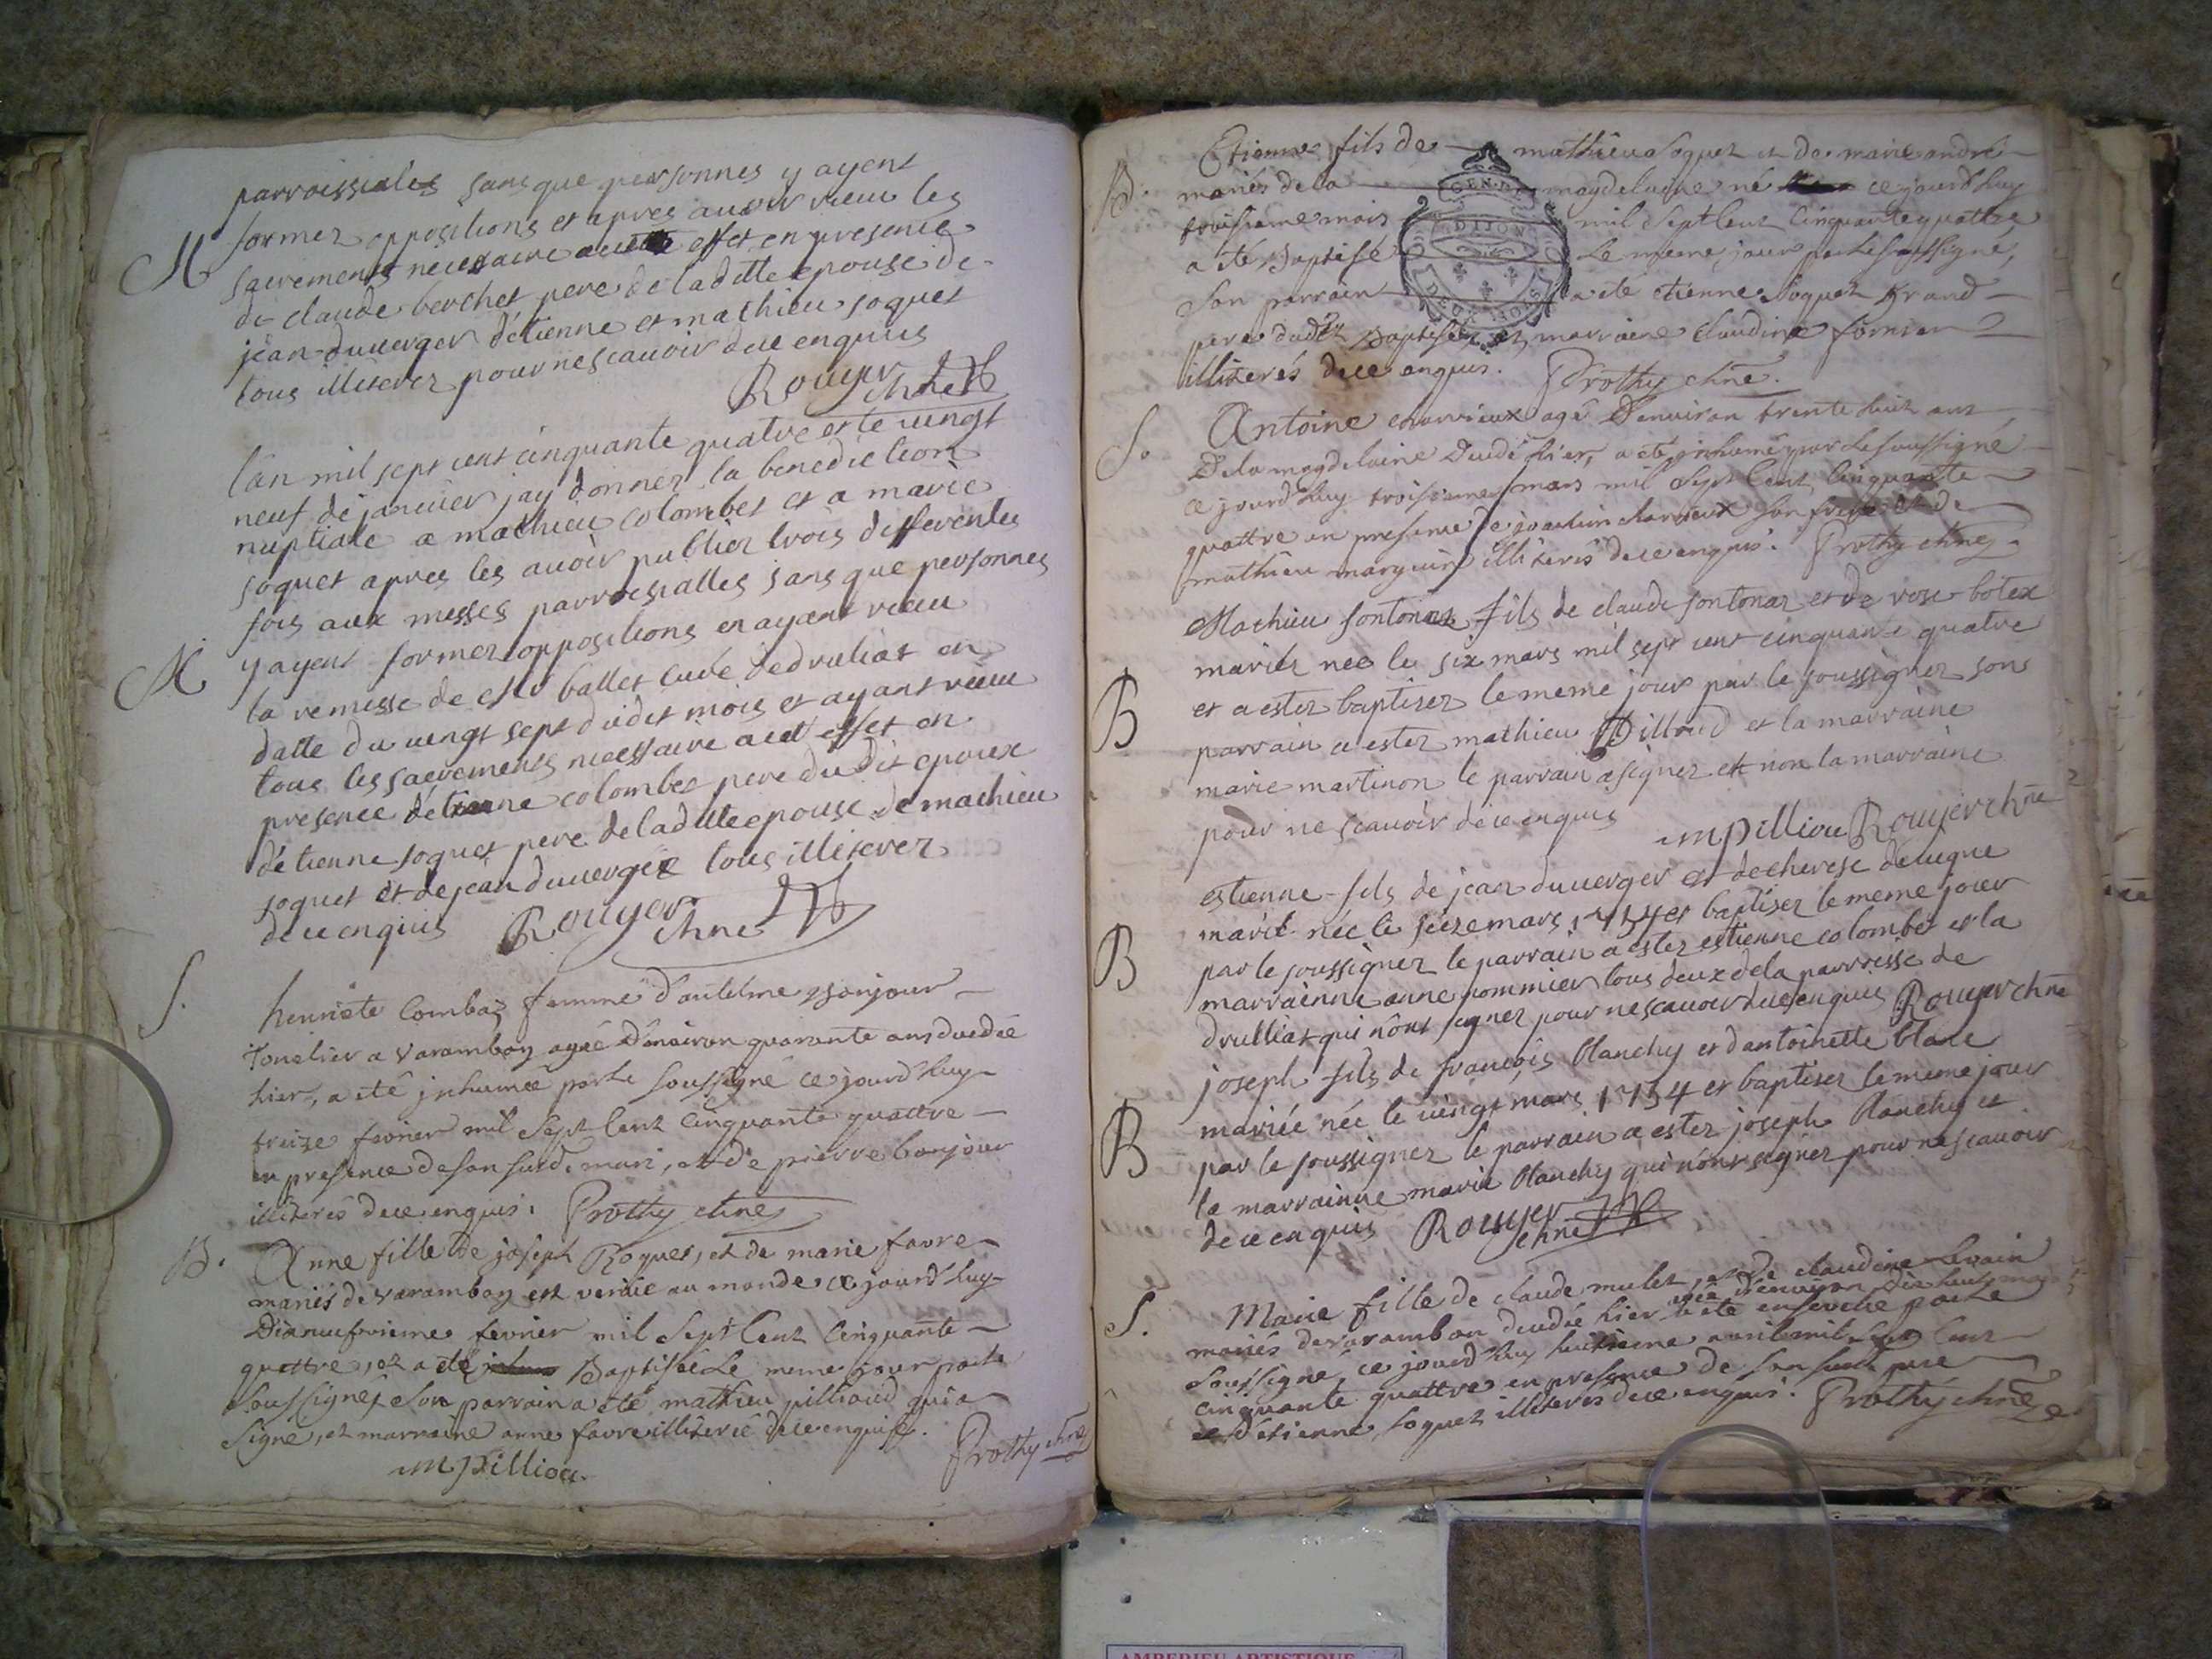 parroissiales sans que personnes y ayent
former oppositions et apres auoir recu les
M sacrements necessaire a cette effet en presence
de claude berchet pere de la ditte epouse de
jean duuerger d'etienne et mathieu soquet
tous illiterez pour ne scauoir de ce enquis
Rouyer chne
l'an mil sept cent cinquante quatre et le vingt
neuf de januier jay donner la benediction
nuptiale a mathieu colombet et a marie
soquet apres les auoir publier trois differentes
fois aux messes parroissialles sans que personnes
M y ayent former oppositions en ayant recu
la remisse de ballet curé de druliat en
datte du vingt sept dudit mois et ayant recu
tous les sacrements necessaire a cet effet en
presence d'etienne colombet pere du dit epoux
d'etienne soquet pere de la ditte epouse de mathieu
soquet et de jean duuerger tous illiterez
de ce enquis Rouyer chne
S. henriete Combaz femme d'antelme bonjour
Tonelier a varambon agée d'enuiron quarante ans decedée
hier, a été inhumée par le soussigné ce jourd'huy
treize feurier mil sept cent cinquante quattre
en presence de son susd. mari, et de pierre bonjour
illiterés de ce enquis. Prothy chne
B. Anne fille de joseph Roques, et de marie favre
mariés de varambon est venüe au monde ce jourd'huy
Dixneufvieme fevrier mil Sept Cent Cinquante
quattre, et a été Baptisée Le meme jour par le
soussigné, Son parrain a été mathieu pilliaud qui a
Signé, et marraine anne favre illiterée de ce enquise.
m pilliou Prothy chne
Etienne fils de mathieu Soquet et de marie andré
B. mariés de la magdelaine né ce jourd'huy
troisieme mars mil Sept Cent Cinquante quattre
a été Baptisé Le meme jour par le soussigné,
Son parrain a été etienne Soquet grand
GEN. DE
DIJON
DEUX SOLS
pere dudt Baptisé, et marraine claudine fornier
illiterés de ce enquis. Prothy chne.
S. Antoine charvieux agé D'enuiron trente huit ans
De la magdelaine decedé hier, a été inhumé par le soussigné
ce jourd'huy troisieme mars mil Sept Cent Cinquante
quattre en presence de joachim charvieux son frere et de
mathieu marguin illiterés de ce enquis. Prothy chne.
Mathieu fontonaz fils de claude fontonaz et de rose botex
mariez née le six mars mil sept cent cinquante quatre
B et a ester baptiser le meme jour par le soussigner sons
parrain a ester mathieu Pilloud et la marraine
marie martinon le parrain a signer et non la marraine
pour ne scauoir de ce enquis m pilliou Rouyer chne
estienne fils de jean duuerger et de therese deleigne
marié née le seize mars 1754 et baptiser le meme jour
B par le soussigner le parrain a ester estienne colombet et la
marrainne anne pommier tous deux de la parroisse de
drulliat qui n'ont signer pour ne scauoir de ce enquis Rouyer chne
joseph fils de francois blanchy et d'antoinette blanc
mariée née le vingt mars 1754 et baptiser le meme jour
B par le soussigner le parrain a ester joseph blanchy et
la marrainne marie blanchy qui n'ont signer pour ne scauoir
de ce enquis Rouyer chne
Marie fille de claude mulet, et de claudine
S. mariés de varambon decedée hier agée d'enuiron dix huit
a été enseuelie par le
Soussigné, ce jourd'huy huitieme auril mil Sept Cent
Cinquante quattre en presence de son susdt pere
et d'etienne Soquet illiterés de ce enquis. Prothy chne
AMBERIEU ARTISTIQUE